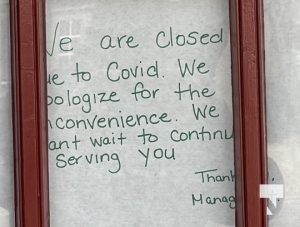 We are closed
ue to Covid. We
pologize for the
nconvenience. We
ant wait to continu
Serving you
Thank
Manag